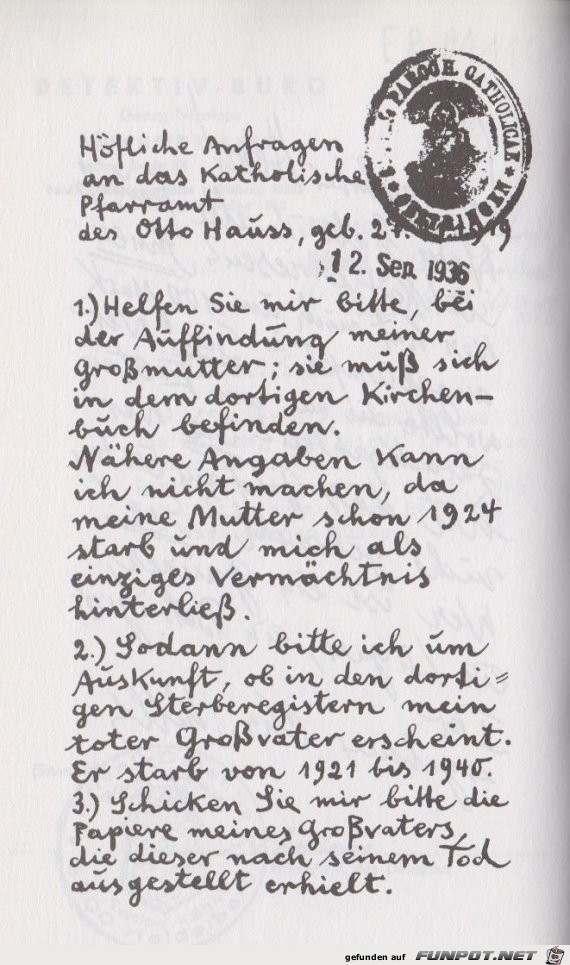 Höfliche Anfragen
an das Katholische
Pfarramt
des Otto Hauss, geb. 27.
12. Sep. 1936
PAROCH. CATHOLICAE
1.) Helfen Sie mir bitte, bei
der Auffindung meiner
Großmutter; sie muß sich
in dem dortigen Kirchen-
buch befinden.
Nähere Angaben kann
ich nicht machen, da
meine Mutter schon 1924
starb und mich als
einziges Vermächtnis
hinterließ.
2.) Sodann bitte ich um
Auskunft, ob in den dorti=
gen Sterberegistern mein
toter Großvater erscheint.
Er starb von 1921 bis 1940.
3.) Schicken Sie mir bitte die
Papiere meines Großvaters,
die dieser nach seinem Tod
ausgestellt erhielt.
gefunden auf FUNPOT.NET